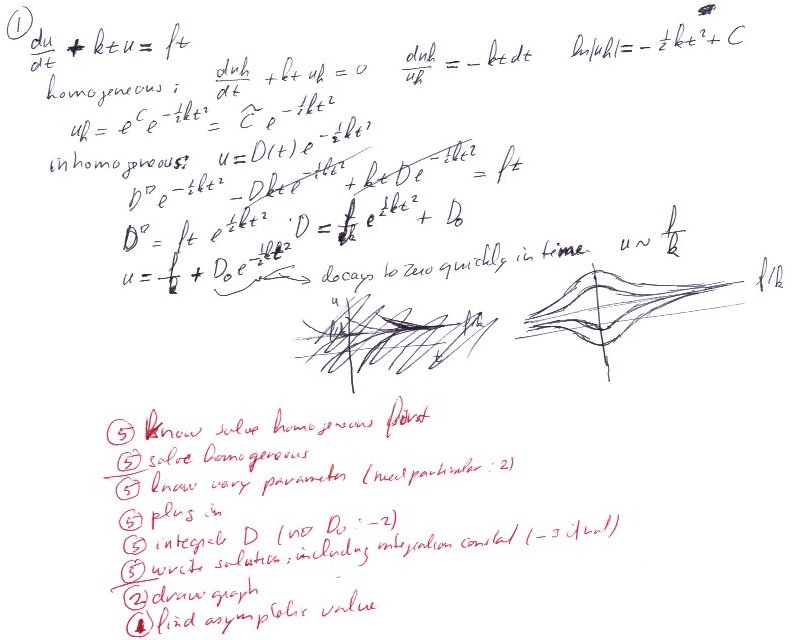 ①
du/dt + ktu = ft
homogeneous: duh/dt + kt uh = 0   duh/uh = -kt dt   ln|uh| = -½kt² + C
uh = e^C e^{-½kt²} = C̃ e^{-½kt²}
inhomogeneous: u = D(t) e^{-½kt²}
D' e^{-½kt²} - Dkt e^{-½kt²} + kt D e^{-½kt²} = ft
D' = ft e^{½kt²} · D = f/k e^{½kt²} + D₀
u = f/k + D₀ e^{-½kt²} → decays to zero quickly in time. u ~ f/k
u
f/k
t
f/k
⑤ know solve homogeneous first
⑤ solve homogeneous
⑤ know vary parameter (need particular: 2)
⑤ plug in
⑤ integrate D (no D₀: -2)
⑤ write solution, including integration constant (-3 if not)
② draw graph
① find asymptotic value